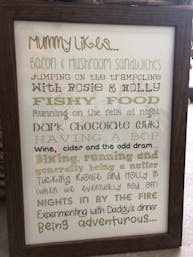 Mummy Likes...
Bacon & Mushroom Sandwiches
Jumping on the trampoline
With Rosie & Holly
FISHY FOOD
Running on the fells at night
Dark Chocolate (lots)
HAVING A BOP
Wine, cider and the odd dram
Biking, running and
generally being a nutter
Tucking Rosie and Holly in
when we eventually get on
NIGHTS IN BY THE FIRE
Experimenting with Daddy's dinner
Being adventurous...